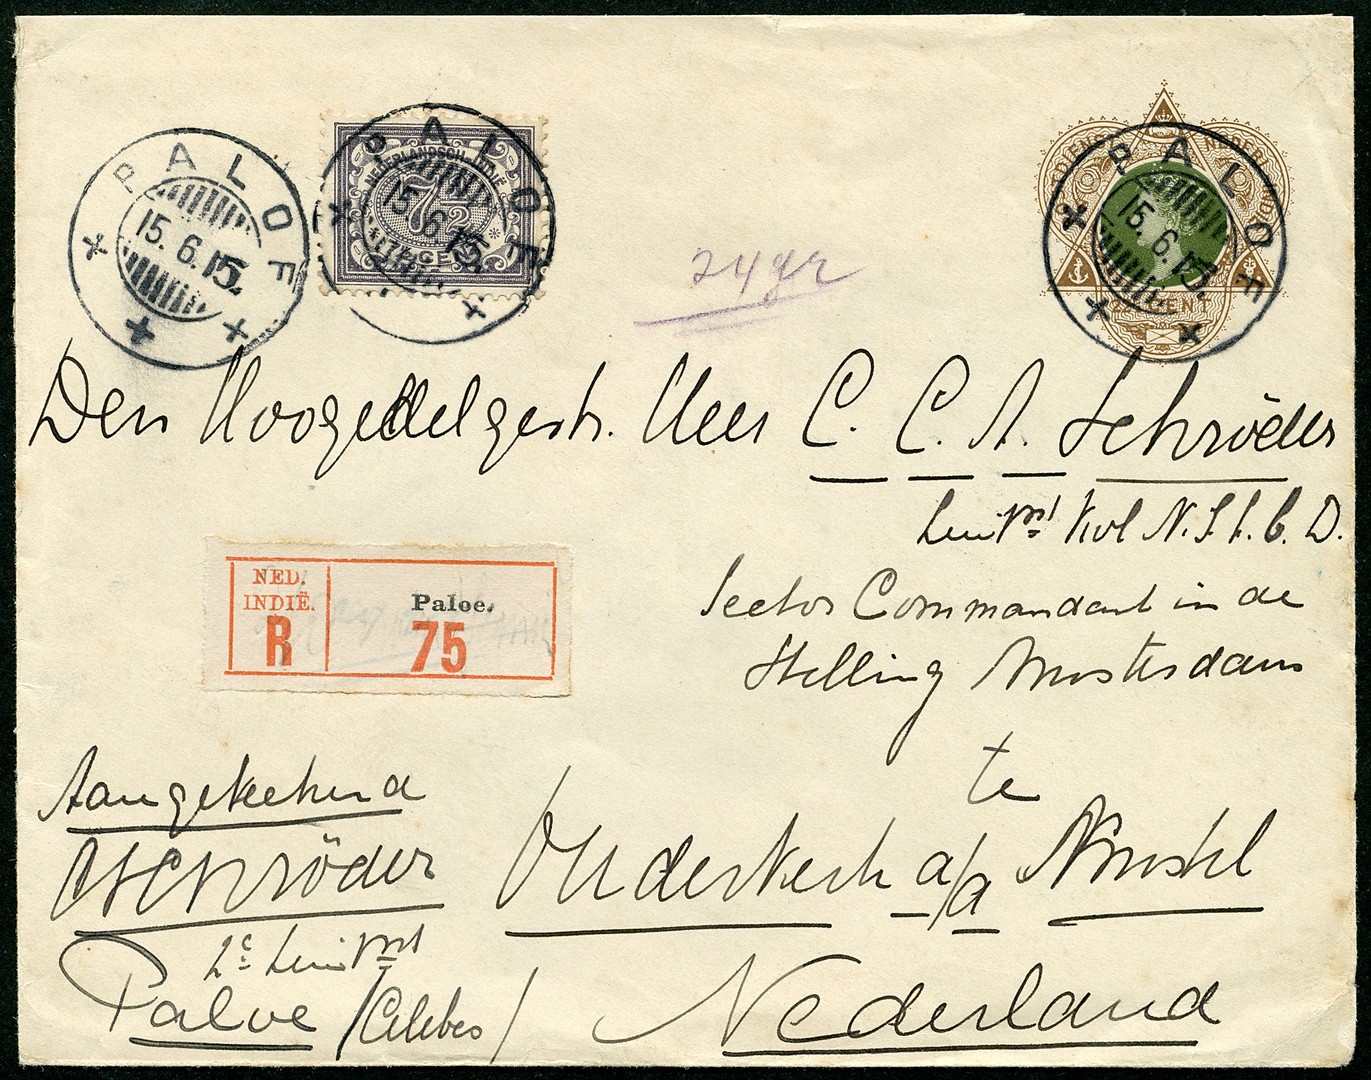 PALOE
15.6.15.
PALOE
15.6.15
NEDERLANDSCH-INDIË
7½
CENT
PALOE
15.6.15.
NEDERL. INDIË
CENT
24 gr
Den Hoogedelgestr. Heer C. C. A. Schröder
Luitnt Kol N. I. L. b. D.
Sector Commandant in de
Stelling Amsterdam
te
NED.
INDIË.
R
Paloe.
75
Aangeteekend
Schröder
2e Luitnt
Paloe / Celebes /
Ouderkerk a/d Amstel
Nederland